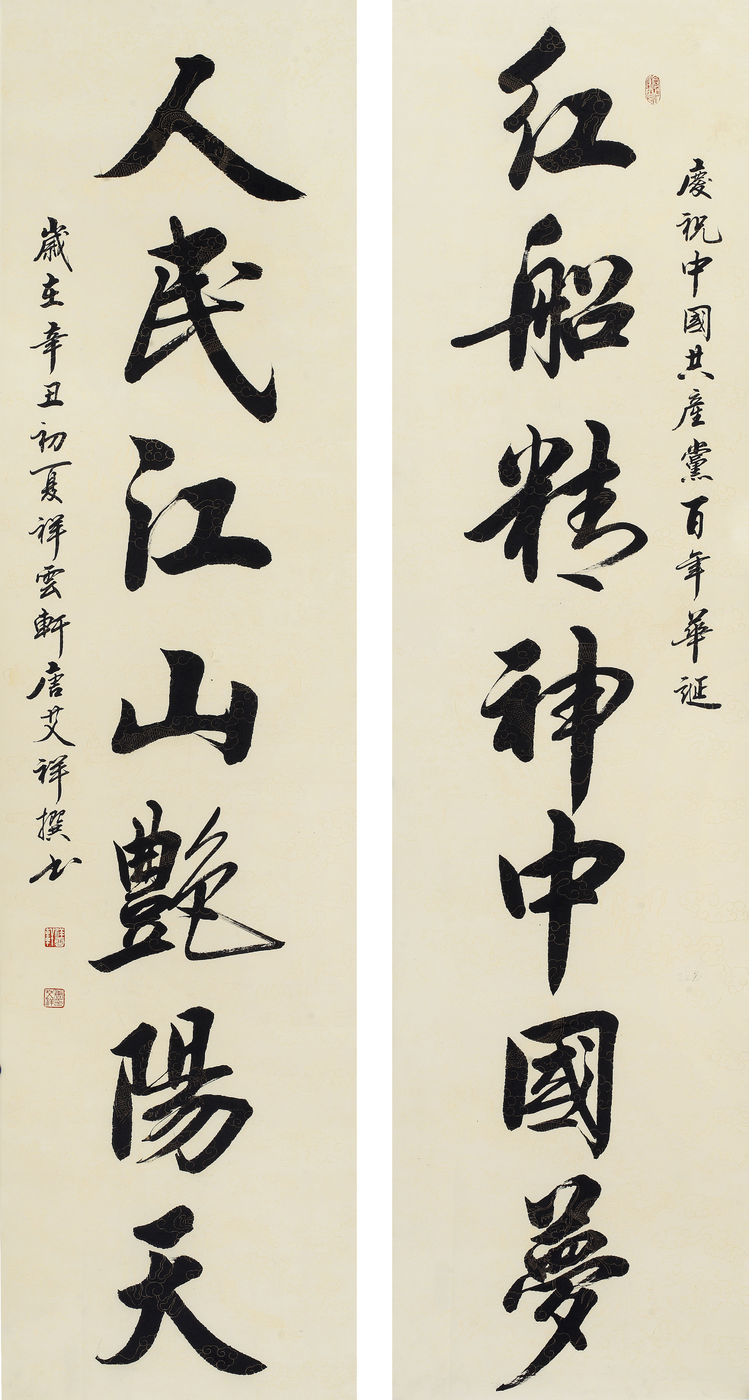 慶祝中國共產黨百年華誕
紅船精神中國夢
人民江山艷陽天
歲在辛丑初夏祥雲軒唐艾祥撰書